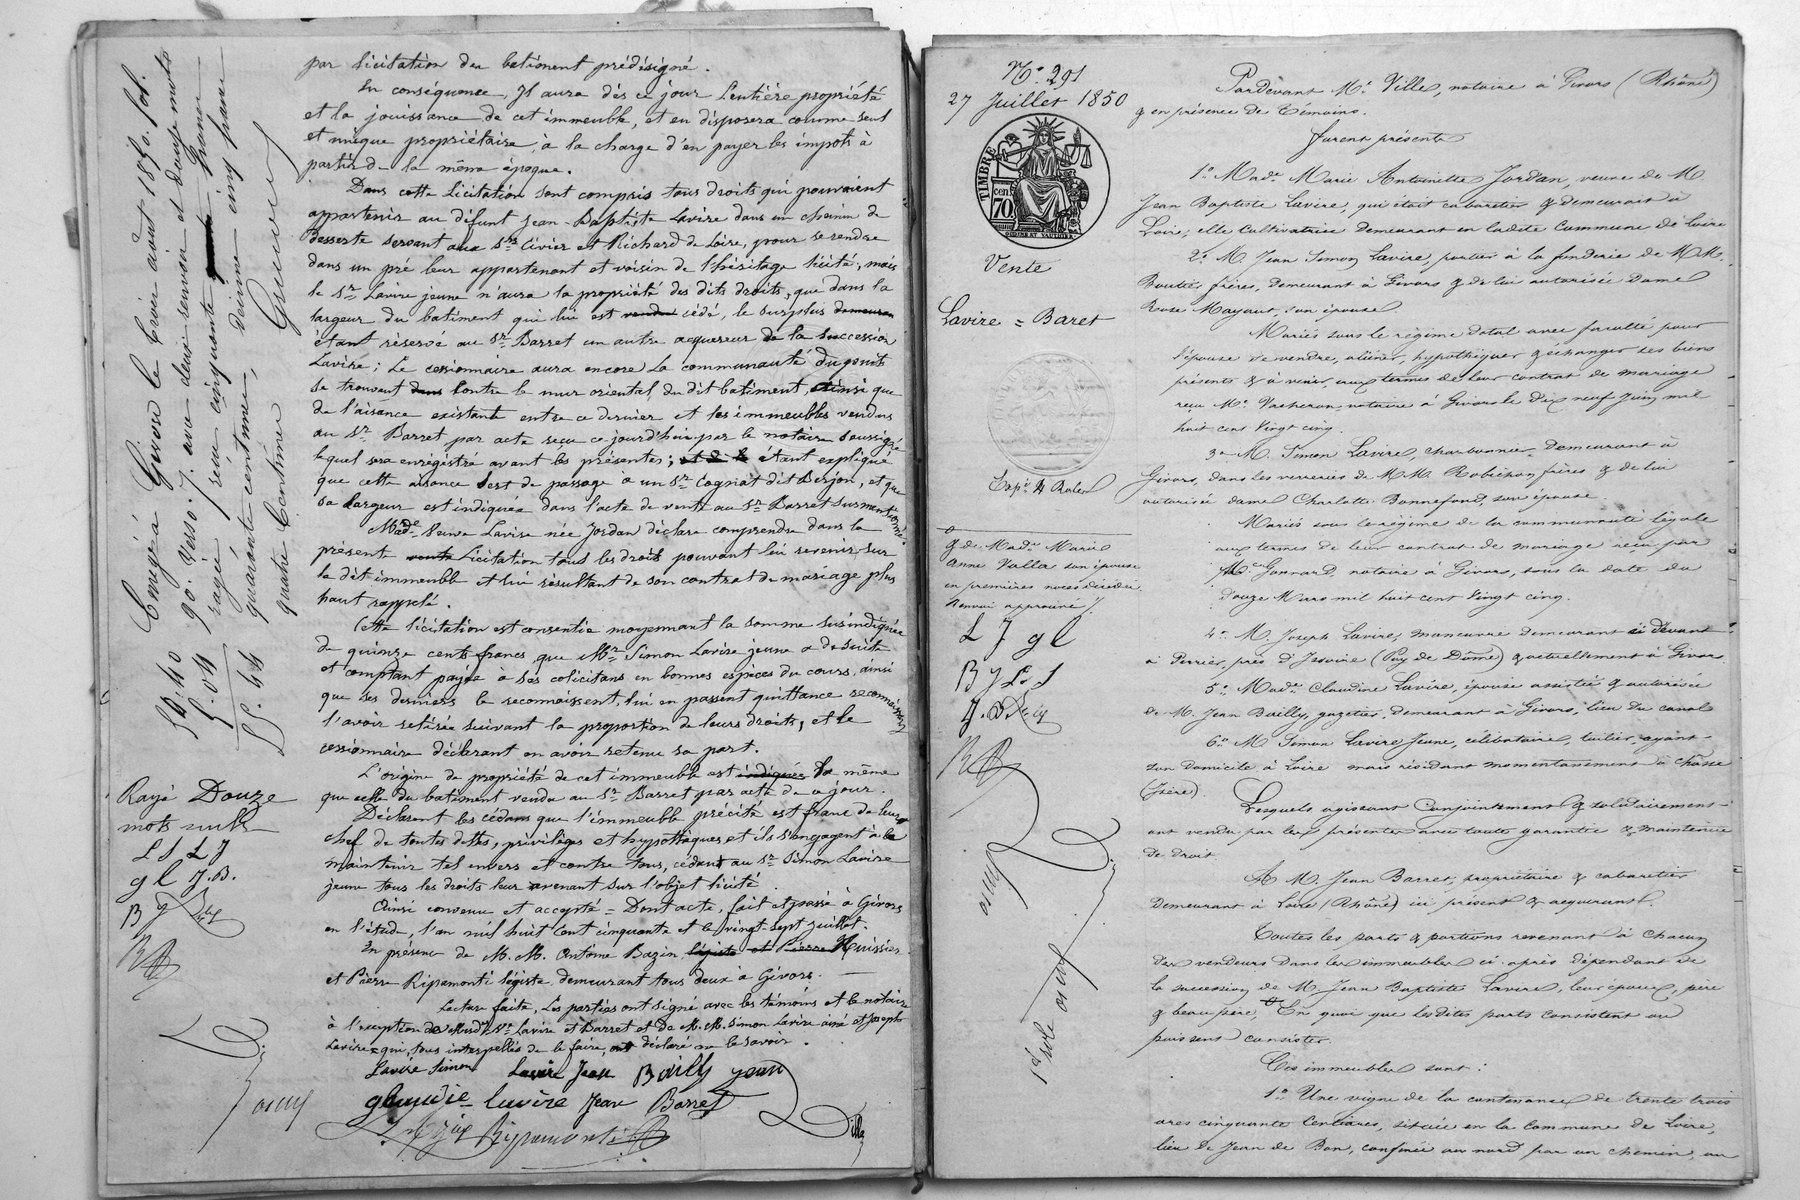 par licitation du batiment prédésigné.
En conséquence, Il aura dès ce jour l'entière propriété
et la jouissance de cet immeuble, et en disposera comme seul
et unique propriétaire, à la charge d'en payer les impots à
partir de la même époque.
Dans cette licitation sont compris tous droits qui pouvaient
appartenir au défunt Jean-Baptiste Lavire dans un chemin de
desserte servant aux Srs Civier et Richard de Loire, pour se rendre
dans un pré leur appartenant et voisin de l'héritage licité, mais
le Sr Lavire jeune n'aura la propriété des dits droits, que dans la
largeur du batiment qui lui est vendu cédé, le surplus demeuran
étant réservé au Sr Barret un autre acquereur de la succession
Lavire; Le cessionnaire aura encore la communauté du puits
se trouvant dans contre le mur oriental du dit batiment, ainsi que
de l'aisance existante entre ce dernier et les immeubles vendus
au Sr Barret par acte reçu ce jourd'hui par le notaire soussigné
lequel sera enrégistré avant les présentes; et de le étant expliqué
que cette aisance sert de passage à un Sr Cognat dit Berjon, et que
sa largeur est indiquée dans l'acte de vente au Sr Barret susmentionné.
Made Veuve Lavire née Jordan déclare comprendre dans la
présent vente licitation tous les droits pouvant lui revenir sur
le dit immeuble et lui résultant de son contrat de mariage plus
haut rappelé.
Cette licitation est consentie moyennant la somme susindiquée
de quinze cents francs, que Mr Simon Lavire jeune a de suite
et comptant payée à ses colicitans en bonnes espèces du cours, ainsi
que ses derniers le reconnaissent, lui en passent quittance reconnaissen
l'avoir retirée suivant la proportion de leurs droits, et le
cessionnaire déclarant en avoir retenu sa part.
L'origine de propriété de cet immeuble est indiquée la même
que celle du batiment vendu au Sr Barret par acte de ce jour.
Déclarent les cédans que l'immeuble précité est franc de leur
chef de toutes dettes, privilèges et hypothèques, et ils s'engagent à le
maintenir tel envers et contre tous, cédant au Sr Simon Lavire
jeune tous les droits leur avenant sur l'objet licité
Ainsi convenu et accepté = Dont acte, fait et passé à Givors
en l'étude, l'an mil huit cent cinquante et le vingt-sept juillet.
En présence de M.M. Antoine Bazin, légiste et Pierre Huissier
et Pierre Ripamonti légiste demeurant tous deux à Givors.
Lecture faite, Les parties ont signé avec les témoins et le notaire
à l'exception de Made Ve Lavire et Barret et de M.M. Simon Lavire ainé et Joseph
Lavire qui, tous interpellés de le faire, ont déclaré ne le savoir.
Laviré Simon Lavire Jean Bailly jean
glaudie lavire Jean Barret
Ripamonti Ville
Enrégistré à Givors le trois août 1850. fol.
90. Verso. 7. avec deux renvois et douze mots
rayés, reçu cinquante francs
quarante centimes, décime cinq francs
quatre Centimes
50.40
5.04
55.44
Rayé Douze
mots nuls
L S L J
g l J.B.
B J
N° 291
27 Juillet 1850
TIMBRE
70 cen
Vente
Lavire = Baret
Expé N Roles
& de Made Marie
Anne Valla son épouse
en premières noces décédée
Renvoi approuvé
L J g l
B J L S
1er role
Pardevant Me Ville, notaire à Givors (Rhône)
& en présence de Témoins.
furent présents
1° Made Marie Antoinette Jordan, veuve de M.
Jean Baptiste Lavire, qui était cabaretier & demeurait à
Loire; elle Cultivatrice demeurant en ladite Commune de Loire
2° M. Jean Simon Lavire, portier à la fonderie de MM.
frères, demeurant à Givors & de lui autorisée Dame
Rose Mayaut, son épouse
Mariés sous le régime dotal avec faculté pour
l'épouse de vendre, aliéner, hypothéquer & échanger ses biens
présents & à venir, aux termes de leur contrat de mariage
reçu Me Vacheron notaire à Givors le Dix neuf Juin mil
huit cent Vingt cinq.
3° M. Simon Lavire, charbonnier, demeurant à
Givors, dans les verreries de MM. Robichon frères & de lui
autorisée dame Charlotte Bonnefond, son épouse.
Mariés sous le régime de la communauté légale
aux termes de leur contrat de mariage reçu par
Me Gonnard, notaire à Givors, sous la date du
douze Mars mil huit cent Vingt cinq.
4° M. Joseph Lavire, manœuvre demeurant ci devant
à Perrier, près d'Issoire (Puy de Dôme) & actuellement à Givors
5° Made Claudine Lavire, épouse assistée & autorisée
de M. Jean Bailly, gazetier, demeurant à Givors, lieu du canal
6° M Simon Lavire Jeune, célibataire, tuilier, ayant
son domicile à Loire mais résidant momentanément à Chasse
(Isère).
Lesquels agissant Conjointement & solidairement
ont vendu par les présentes avec toute garantie & maintenue
de droit.
A M. Jean Barret, propriétaire & cabaretier
Demeurant à Loire (Rhône) ici présent & acquerant.
Toutes les parts & portions revenant à chacun
des vendeurs Dans les immeubles ci-après dépendant de
la succession de M. Jean Baptiste Lavire, leur époux, père
& beau père, En quoi que lesdites parts consistent ou
puissent consister.
Ces immeubles sont:
1° Une vigne de la contenance de trente trois
ares cinquante Centiares, située en la commune de Loire,
lieu de Jean de Bon, confinée au nord par un chemin, au